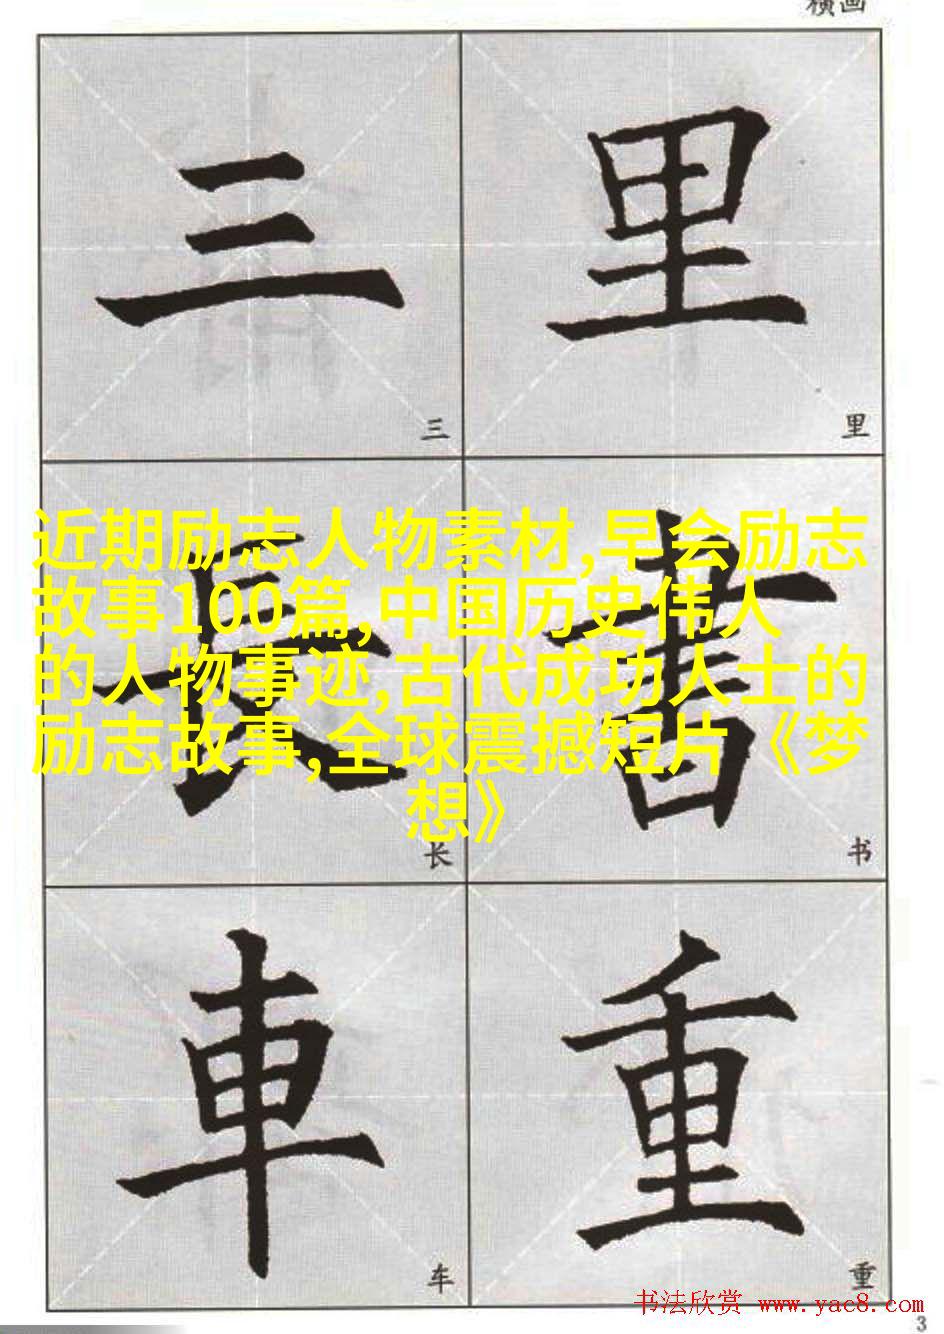 横画
三 里
三 里
近期励志人物素材,早会励志
故事100篇,中国历史伟人
的人物事迹,古代成功人士的
励志故事,全球震撼短片《梦
想》
長 書
长 书
車 重
车 重
书法欣赏 www.yac8.com
3